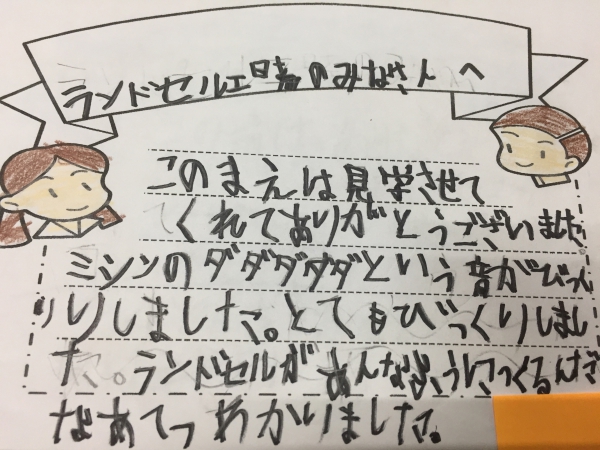 ランドセル工場のみなさんへ
このまえは見学させて
くれてありがとうございました
ミシンのダダダダダという音がびっく
りしました。とてもびっくりしまし
た。ランドセルがあんなふうにつくるんだ
なあてっわかりました。